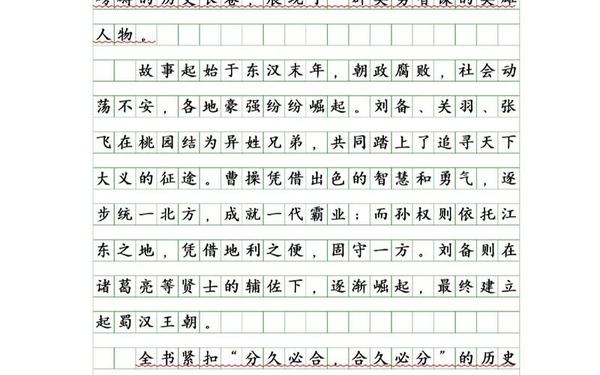 人物。
故事起始于东汉末年，朝政腐败，社会动
荡不安，各地豪强纷纷崛起。刘备、关羽、张
飞在桃园结为异姓兄弟，共同踏上了追寻天下
大义的征途。曹操凭借出色的智慧和勇气，逐
步统一北方，成就一代霸业；而孙权则依托江
东之地，凭借地利之便，固守一方。刘备则在
诸葛亮等贤士的辅佐下，逐渐崛起，最终建立
起蜀汉王朝。
全书紧扣“分久必合，合久必分”的历史